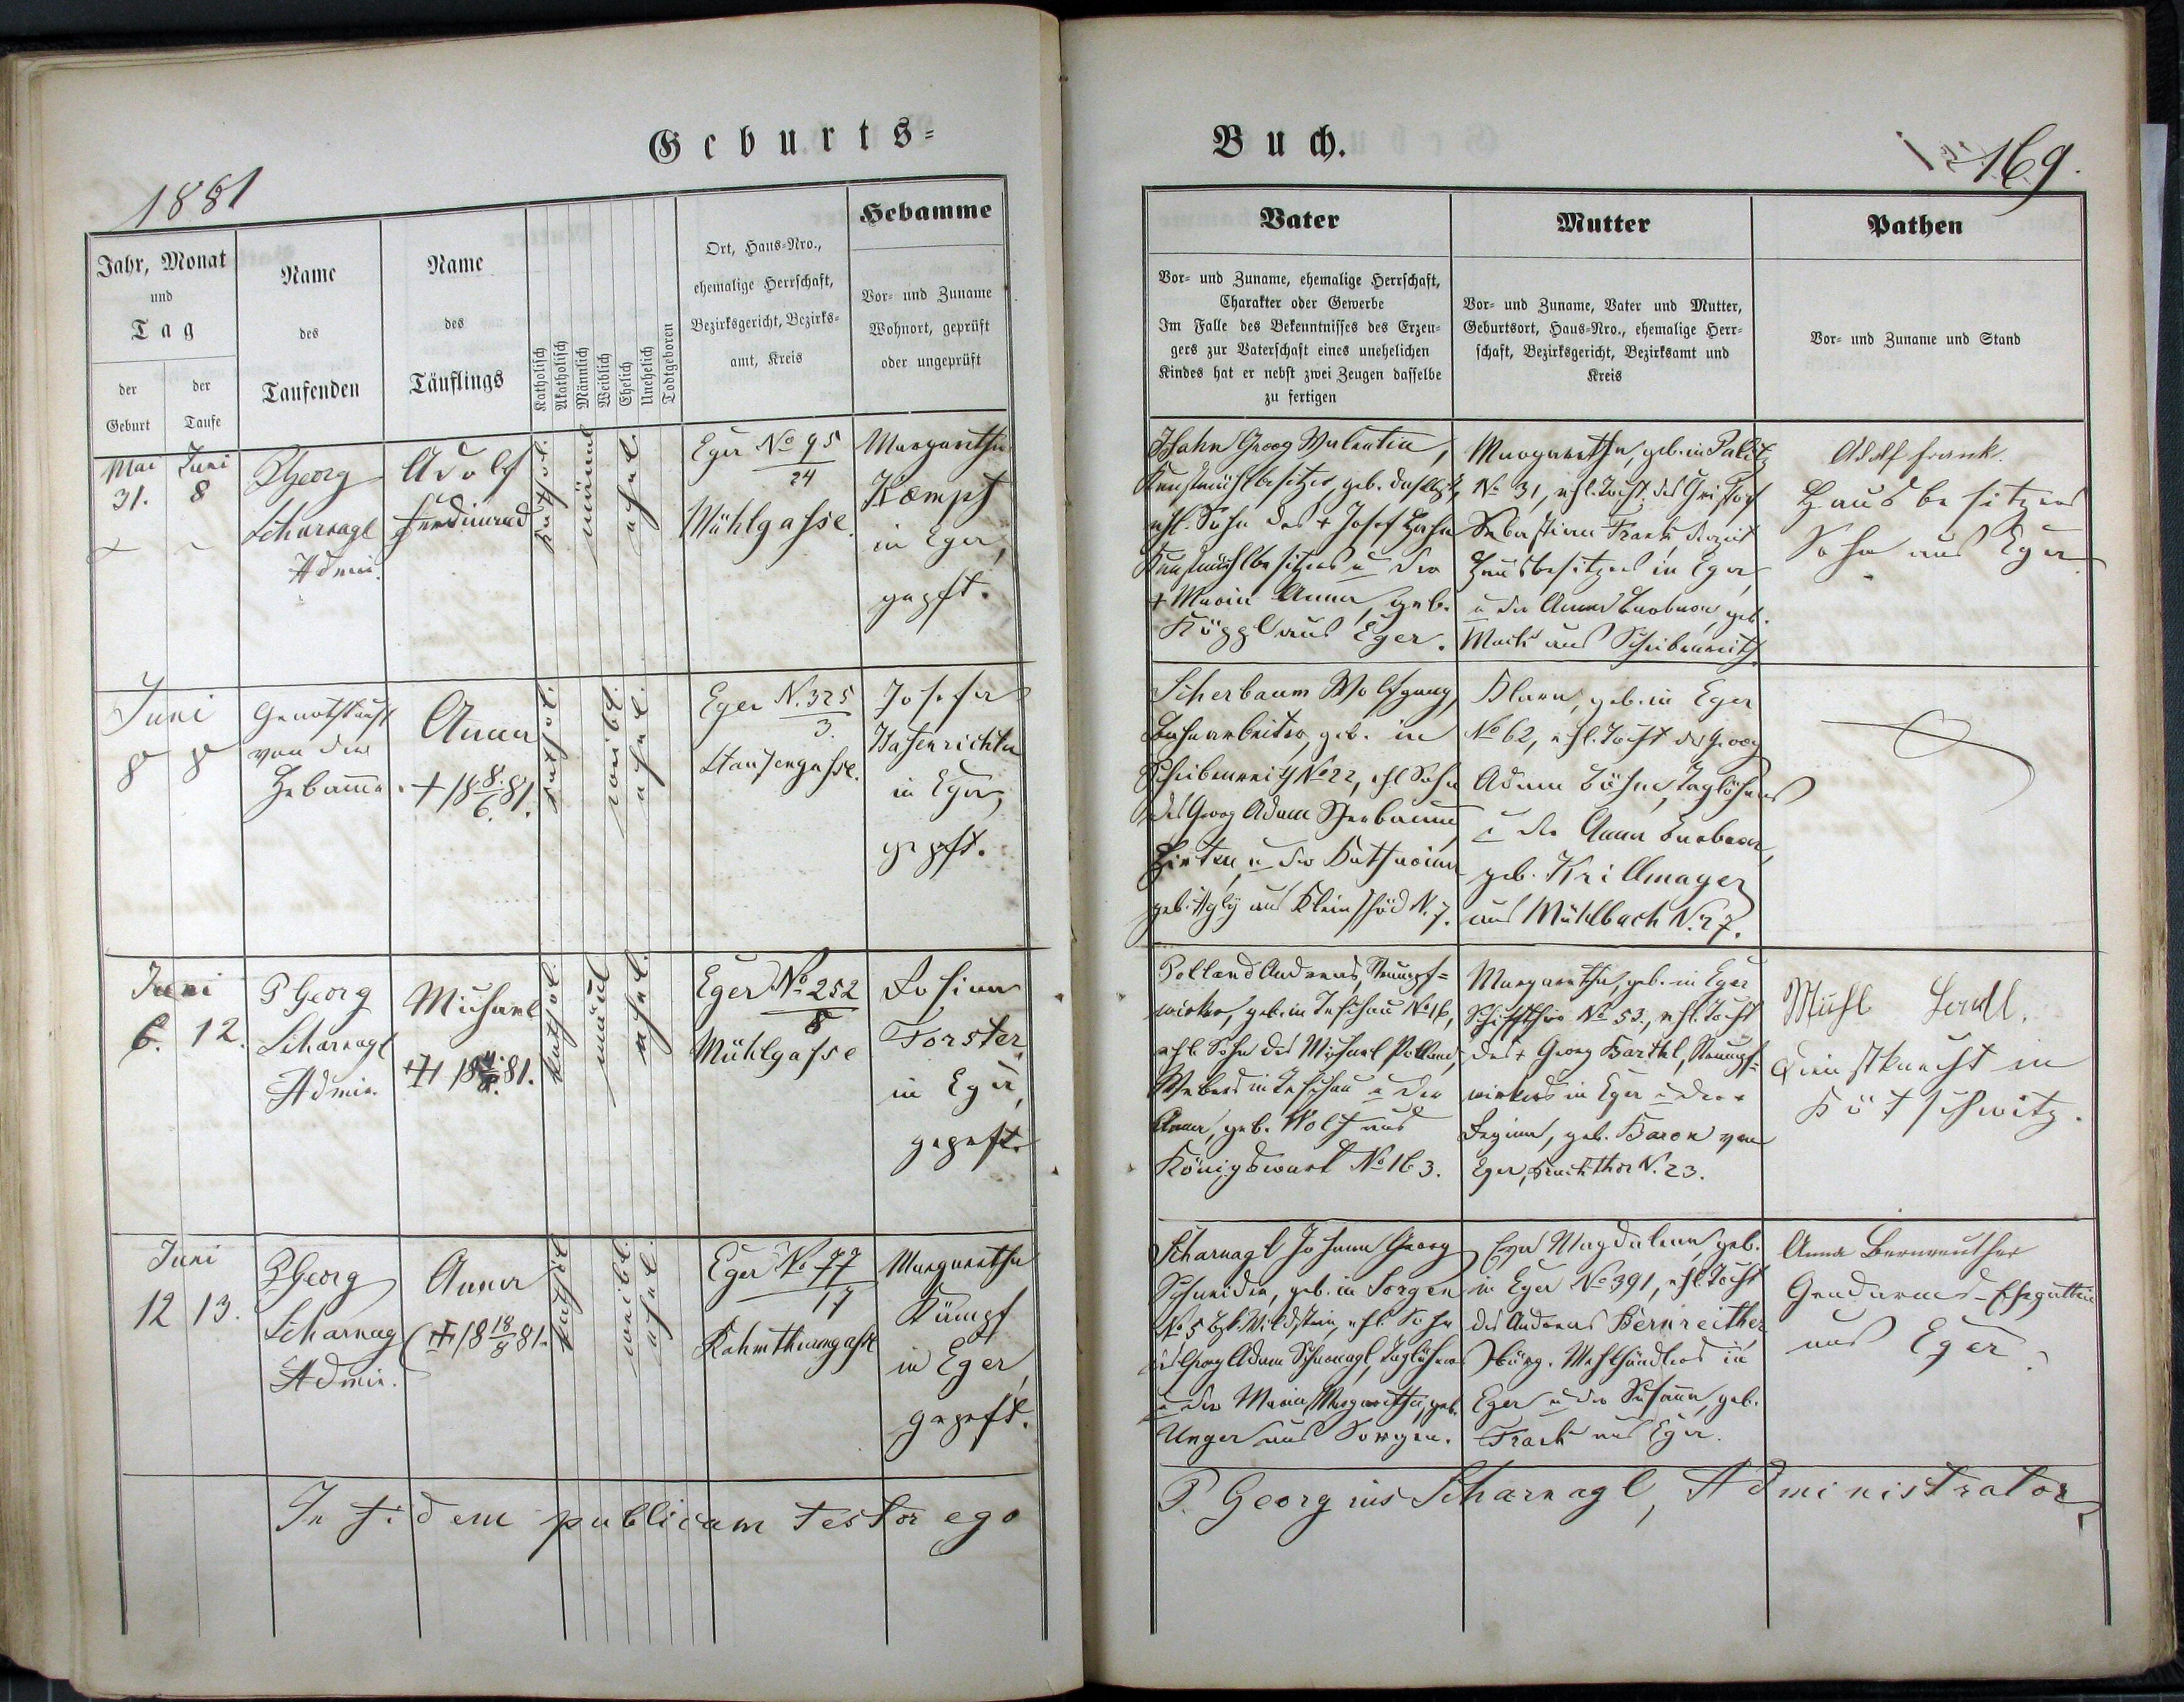 Geburts-
Buch.
1881
169.
Jahr, Monat
und
Tag
der
Geburt
der
Taufe
Name
des
Taufenden
Name
des
Täuflings
Katholisch
Akatholisch
Männlich
Weiblich
Ehelich
Unehelich
Todtgeboren
Ort, Haus-Nro.,
ehemalige Herrschaft,
Bezirksgericht, Bezirks-
amt, Kreis
Hebamme
Vor- und Zuname
Wohnort, geprüft
oder ungeprüft
Vater
Vor- und Zuname, ehemalige Herrschaft,
Charakter oder Gewerbe
Im Falle des Bekenntnisses des Erzeu-
gers zur Vaterschaft eines unehelichen
Kindes hat er nebst zwei Zeugen dasselbe
zu fertigen
Mutter
Vor- und Zuname, Vater und Mutter,
Geburtsort, Haus-Nro., ehemalige Herr-
schaft, Bezirksgericht, Bezirksamt und
Kreis
Pathen
Vor- und Zuname und Stand
Mai
31.
Juni
8
P Georg
Scharnagl
Admin.
Adolf
Ferdinand
kathol.
männl
ehel.
Eger No 95
24
Mühlgasse.
Margaretha
Kaempf
in Eger,
gepft.
Hahn Georg Valentin,
Kunstmühlbesitzer, geb. daselbst,
ehl. Sohn des + Josef Hahn
Kunstmühlbesitzers u der
+ Maria Anna, geb.
Köppl aus Eger.
Margaretha, geb. in Palitz
No 31, ehl. Tocht. des
Sebastian Frank derzeit
Hausbesitzers in Eger
u der Anna Barbara, geb.
Mark aus Scheibenreith.
Adolf Frank.
Hausbesitzers
Sohn aus Eger
Juni
8 8
Genothtauft
von der
Hebamme.
Anna
+ 18 8/6 81.
kathol.
weibl.
ehel.
Eger N. 325
3.
Stausengasse.
Josefa
Hasenrichter
in Eger,
gepft.
Scherbaum Wolfgang,
Bahnarbeiter, geb. in
Scheibenreith No 22, ehl Sohn
des Georg Adam Scherbaum
Hirten, u der Katharina
geb. aus Kleinschüd N. 7.
Klara, geb. in Eger
No 62, ehl. Tocht des Georg
Adam Böhm, Taglöhners
u der Anna Barbara,
geb. Krillmayer
aus Mühlbach N. 27.
Juni
6. 12.
P Georg
Scharnagl
Admin.
Michael
81.
kathol.
männl
ehel.
Eger No 252
8
Mühlgasse
Rosina
Forster
in Eger,
gepft.
Polland Andreas, Strumpf-
wirker, geb. in Teschau No 16,
ehl. Sohn des Michael Polland,
Webers in Teschau u der
Anna, geb. Wolf aus
Königswart No 163.
Margaretha, geb. in Eger
Schiffthor No 53., ehl. Tocht
des + Georg Barthl, Strumpf-
wirkers in Eger u der +
Regina, geb. Baron von
Eger, N. 23.
Michl
Dienstknecht in
Kötschwitz.
Juni
12 13.
P Georg
Scharnagl
Admin.
Anna
+ 18 18/8 81.
kathol
weibl.
ehel.
Eger No 77
17
Rahmthurmgasse
Margaretha
Kämpf
in Eger,
gepft.
Scharnagl Johann Georg
Schneider, geb. in Sorgen
No 5 Bzk. Wildstein, ehl. Sohn
des Georg Adam Scharnagl, Taglöhners
u der Maria Margaretha, geb.
Unger aus Sorgen.
Eva Magdalena, geb.
in Eger No 391, ehl. Tocht
des Andreas Bernreither
bürg. Mehlhändlers in
Eger u der Susanna, geb.
Frank aus Eger.
Anna Bernreuther
Gendarmes-Ehegattin
aus Eger.
In fidem publicam testor ego
P. Georgius Scharnagl, Administrator